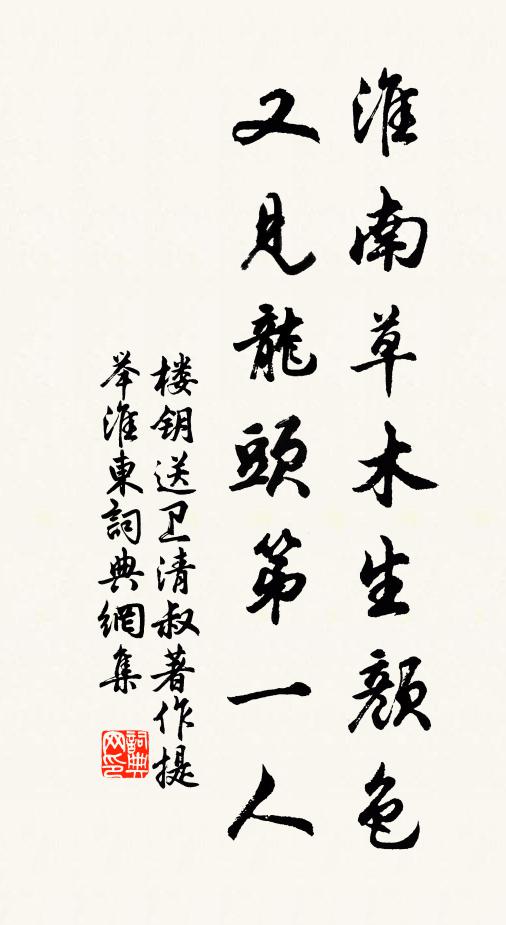 淮南草木生顔色
又見龍頭第一人
楼钥送卫清叔著作提
举淮東詞典網集
詞典
网印